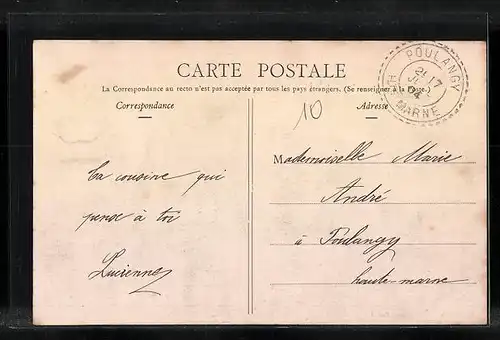 CARTE POSTALE
La Correspondance au recto n'est pas acceptée par tous les pays étrangers. (Se renseigner à la Poste.)
Correspondance
Adresse
10
POULANGY
21 17
JUIL
04
HTE MARNE
ta cousine qui
pense à toi
Lucienne
Mademoiselle Marie
André
à Poulangy
haute-marne